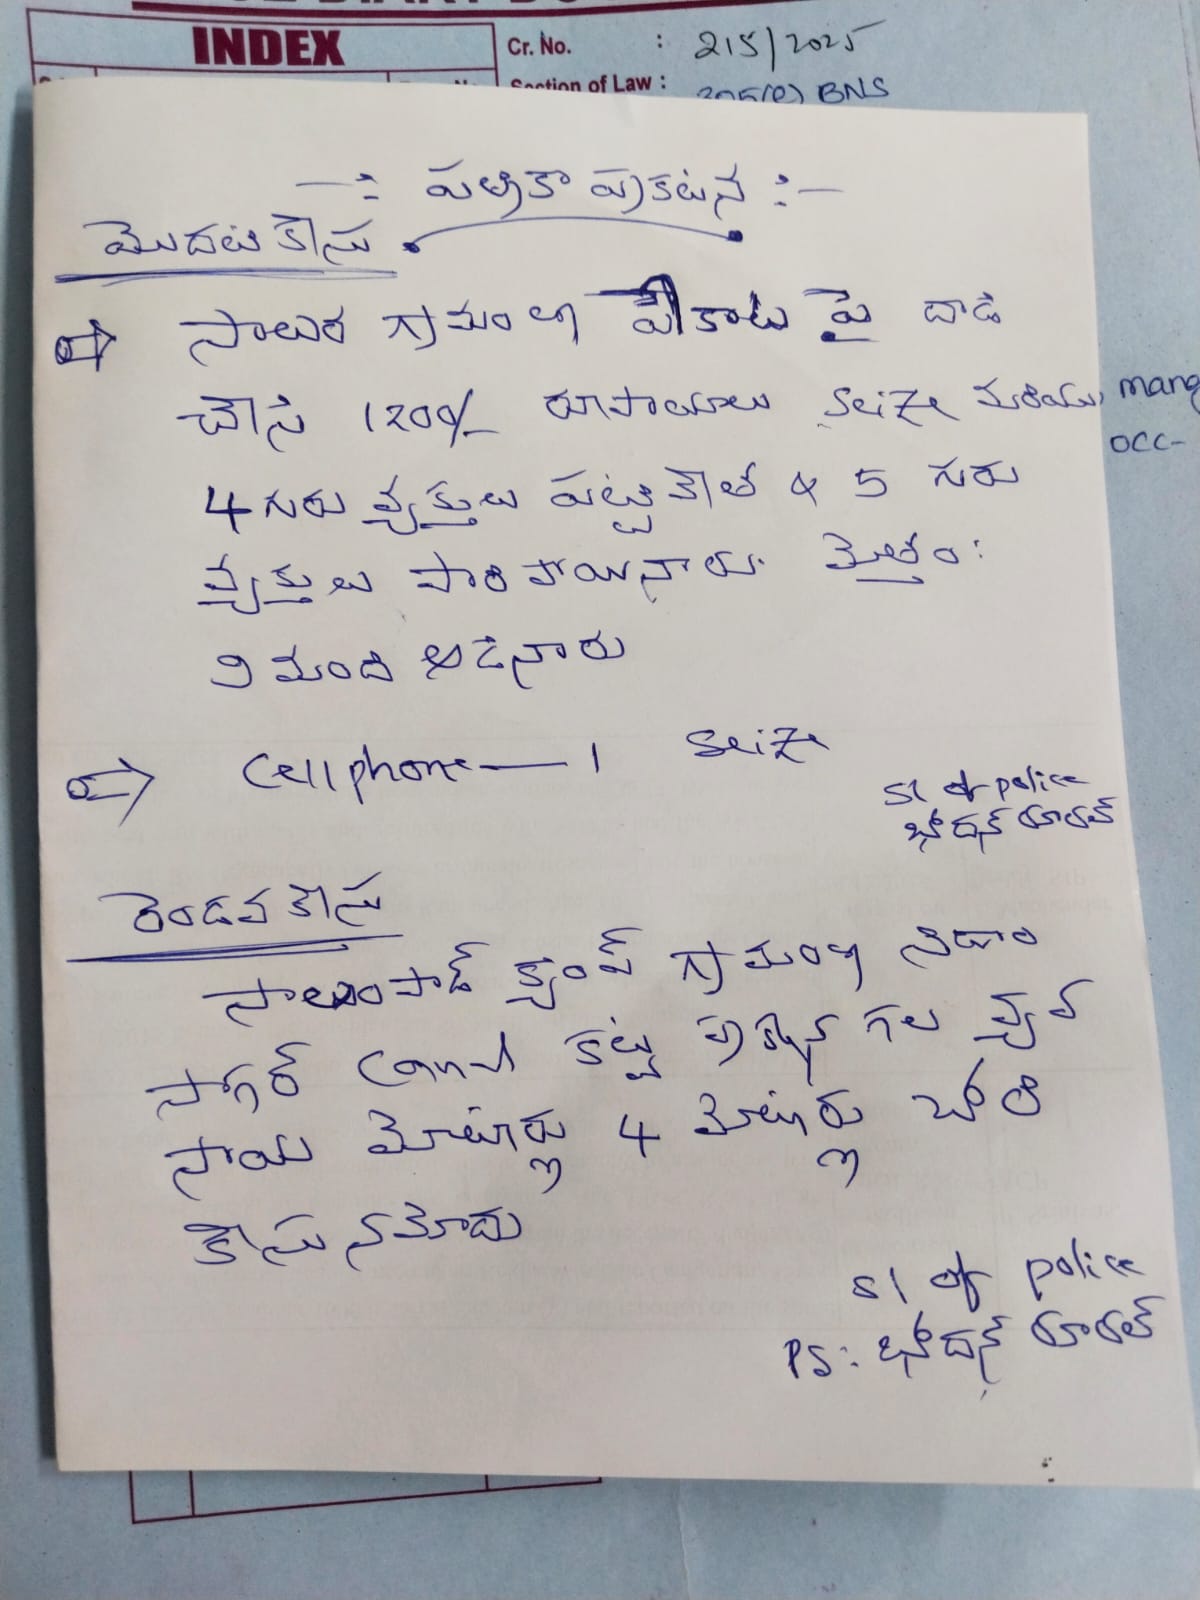 INDEX
Cr. No. : 215/2025
Section of Law : BNS
—: పత్రికా ప్రకటన :—
మొదటి కేసు
⇨ సాలుర గ్రామంలో పేకాట పై దాడి
చేసి 1200/- రూపాయలు seize మరియు
4 గురు వ్యక్తులు పట్టికేత & 5 గురు
వ్యక్తులు పారి పోయినారు. మొత్తం:
9 మంది ఆడినారు
⇨ Cellphone — 1 seize
SI of police
బోధన్ రూరల్
రెండవ కేసు
సాలంపాడ్ క్యాంప్ గ్రామంలో నిజాం
సాగర్ Canal కట్ట ప్రక్కన గల వ్యవ
సాయ మోటార్లు 4 మోటార్లు చోరి
కేసు నమోదు
SI of police
PS: బోధన్ రూరల్